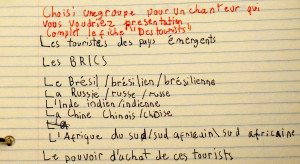 Choisi une groupe pour un chanteur qui
vous voudriez presentation
Complet le fiche "Des tourists"
Les touristes des pays émergents
Les BRICS
Le Brésil/brésilien/brésilienne
La Russie/russe/russe
L'Inde indien/indienne
La Chine Chinois/choise
La
L'Afrique du sud/sud africain\sud africaine
Le pouvoir d'achat de ces tourists